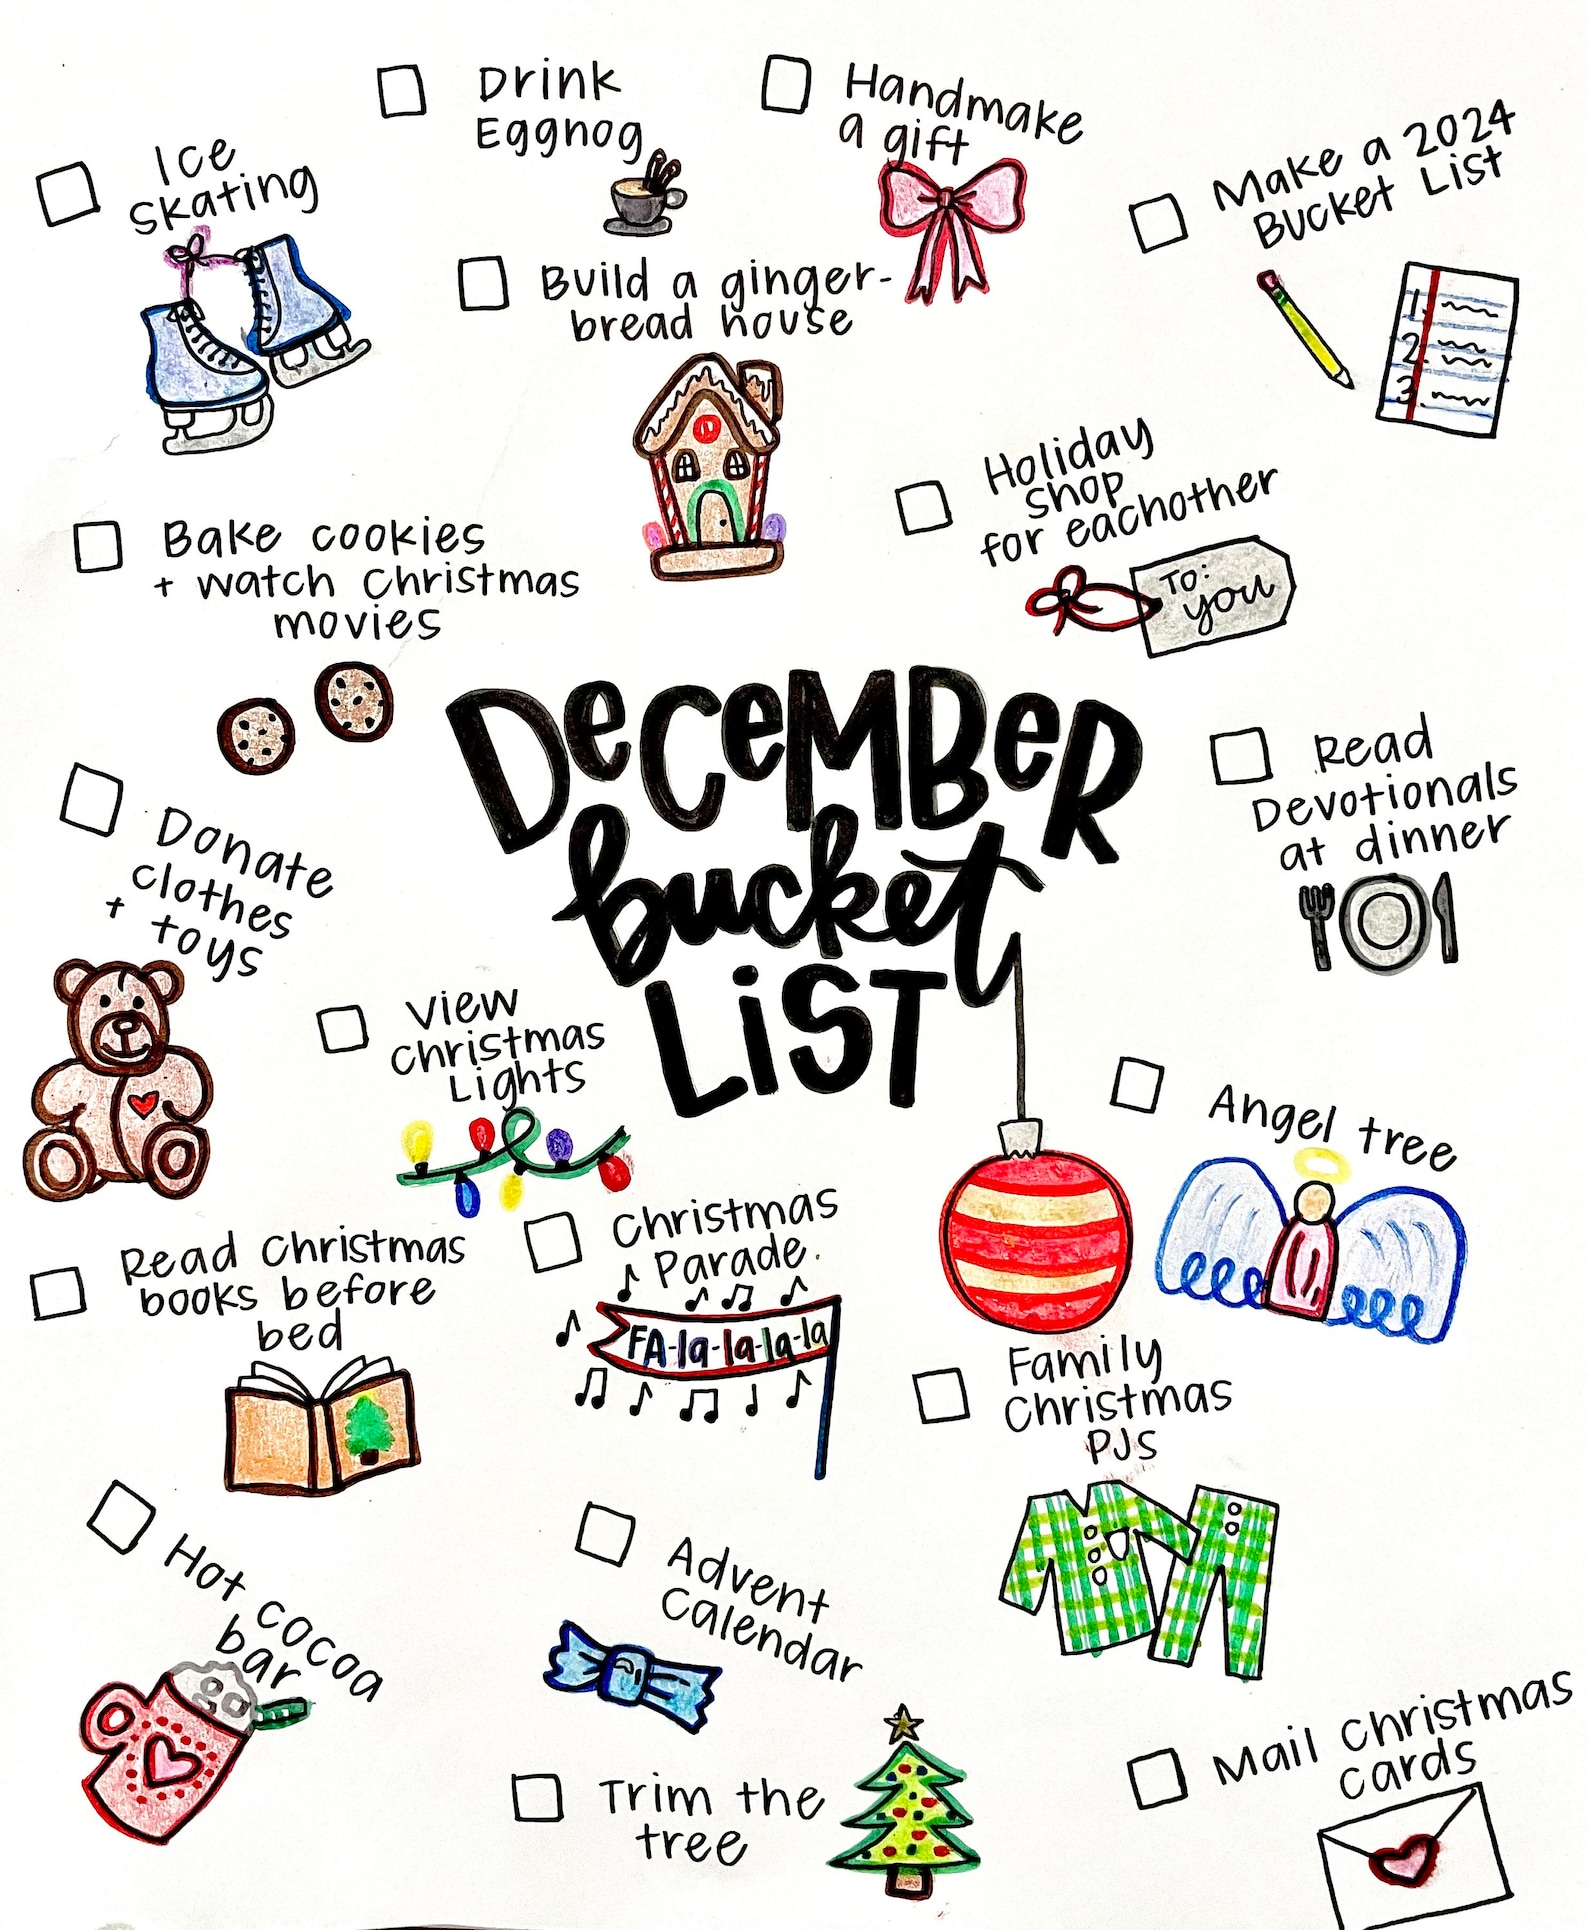 Drink
Eggnog
Handmake
a gift
Ice
skating
Make a 2024
Bucket List
1
2
3
Build a ginger-
bread house
Holiday
shop
for eachother
To:
you
Bake cookies
+ watch Christmas
movies
December
bucket
List
Read
Devotionals
at dinner
Donate
clothes
+ toys
View
Christmas
Lights
Angel tree
Christmas
Parade
FA-la-la-la-la
Read Christmas
books before
bed
Family
Christmas
PJs
Hot cocoa
bar
Advent
Calendar
Trim the
tree
Mail Christmas
cards